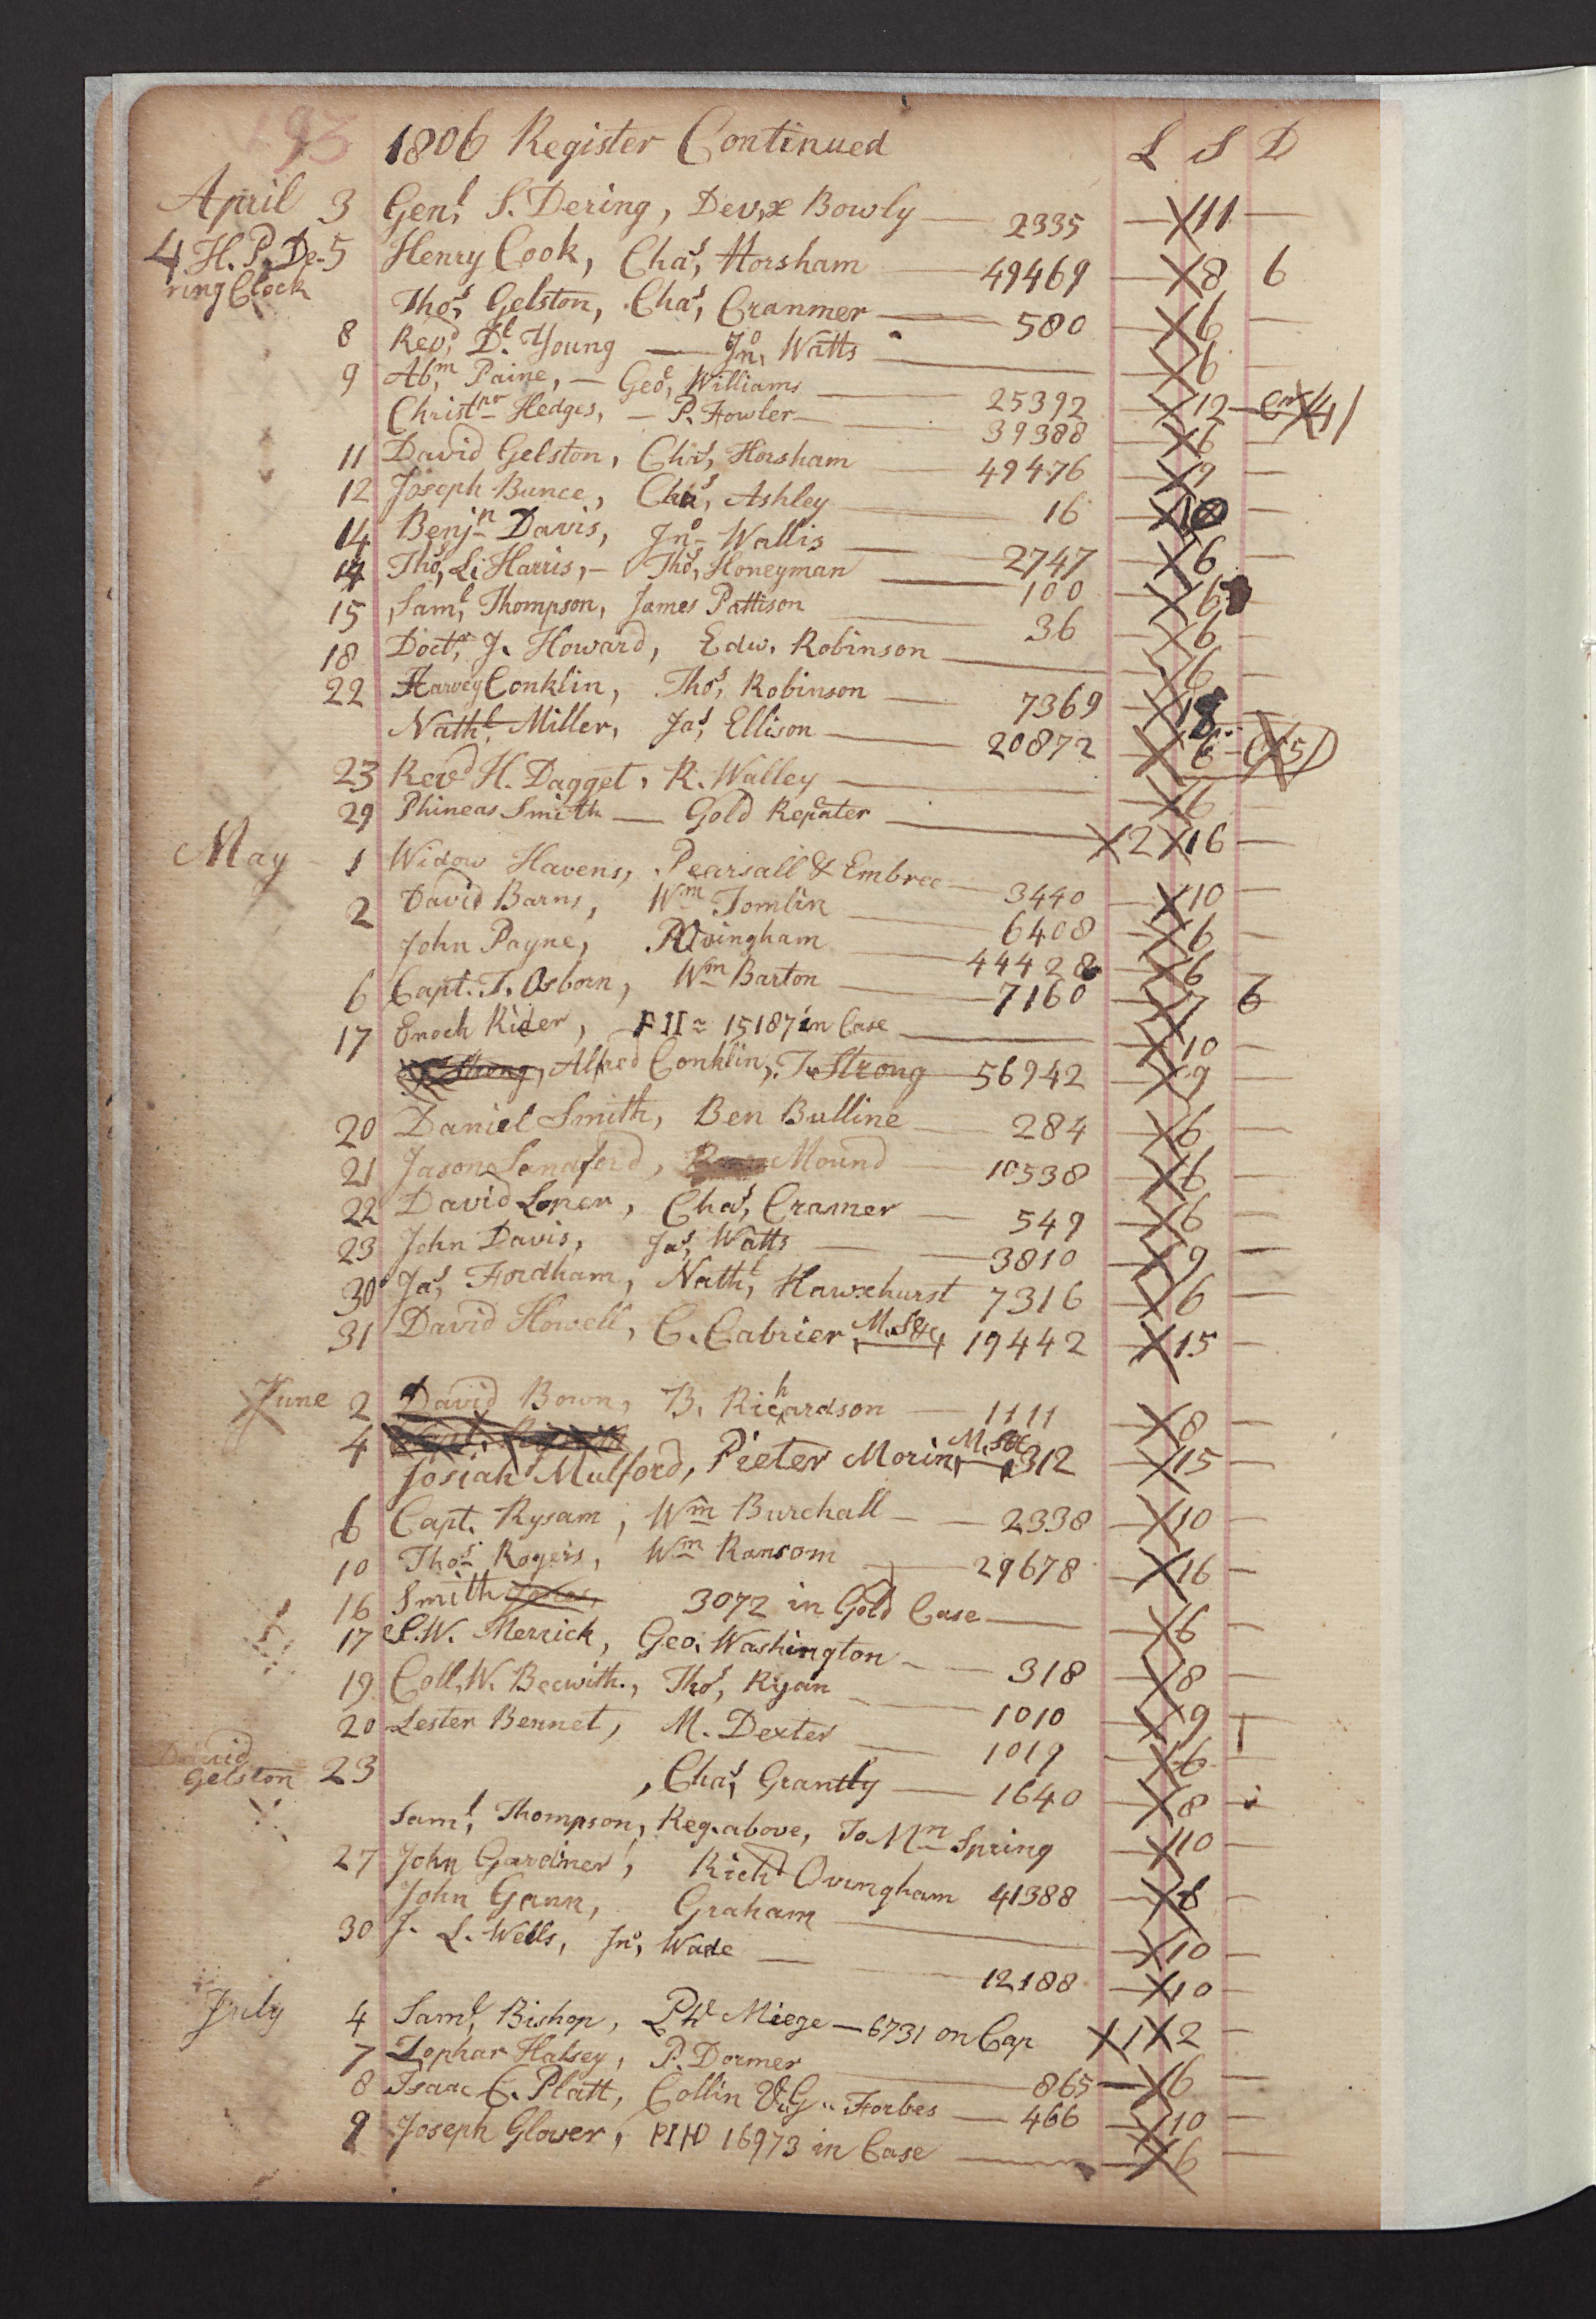 193 1806 Register Continued L S D
April 3 Genl, S. Dering, Dev,x Bowly — 2335 — X 11 —
4 H. P. De- 5 Henry Cook, Chas, Horsham — 49469 — X 8 6
ring Clock
Thos, Gelston, Chas, Cranmer — 580 — X 6 —
8 Revd, Dr. Young — Jno, Watts — X 6 —
9 Abm, Paine, — Geo, Williams — 25392 — X 12 —
Christpr Hedges, — P. Fowler — 39388 — X 6 —
11 David Gelston, Chas, Horsham — 49476 — X 9 —
12 Joseph Bunce, Chas, Ashley — 16 — X 10 —
14 Benjn Davis, Jno Wallis — 2747 — X 6 —
14 Thos, Li Harris, — Thos, Honeyman — 100 — X 6 —
15 Saml, Thompson, James Pattison — 36 — X 6 —
18 Doctr, J. Howard, Edw. Robinson — X 6 —
22 Harvey Conklin, Thos, Robinson — 7369 — X 18
Nathl, Miller, Jas, Ellison — 20872 — X 6 —
23 Revd H. Dagget, R. Walley — X 6 —
29 Phineas Smith — Gold Repater — X 2 X 16 —
May 1 Widow Havens, Pearsall & Embree — 3440 — X 10 —
2 David Barns, Wm Tomlin — 6408 — X 6 —
John Payne, R Ovingham — 44428 — X 6 —
6 Capt. J. Osborn, Wm Barton — 7160 — X 7 6
17 Enoch Rider, F II = 15187 in Case — X 10 —
Alfred Conklin, J. Strong 56942 — X 9 —
20 Daniel Smith, Ben Bulline — 284 — X 6 —
21 Jasone Sandford, Mound — 10538 — X 6 —
22 David Loper, Chas, Cramer — 549 — X 6 —
23 John Davis, Jas, Watts — 3810 — X 9 —
30 Jas, Fordham, Nathl, Hawxhurst 7316 — X 6 —
31 David Howell, C. Cabrier M.S&c 19442 — X 15 —
June 2 David Bown, B. Richardson — 1111 — X 8 —
4
Josiah Mulford, Pieter Morin, M.S&c 312 — X 15 —
6 Capt. Rysam, Wm Burchall — 2338 — X 10 —
10 Thos Rogers, Wm Ransom — 29678 — X 16 —
16 Smith 3072 in Gold Case — X 6 —
17 S.W. Merrick, Geo. Washington — 318 — X 8 —
19 Coll. W. Becwith., Thos, Ryan — 1010 — X 9
20 Lester Bennet, M. Dexter — 1019 — X 6 —
David
Gelston 23 , Chas, Grantly — 1640 — X 8 —
Saml, Thompson, Reg. above, To Mn Spring — X 10 —
27 John Gardiner, Richd Ovingham 41388 — X 8 —
John Gann, Graham — X 10 —
30 J. L. Wells, Jno, Wade — 12188 — X 10 —
July 4 Saml, Bishop, Miege — 6731 on Cap X 1 X 2 —
7 Zophar Halsey, P. Dormer — 865 — X 6 —
8 Isaac C. Platt, Collin V. G. Forbes — 466 — X 10 —
9 Joseph Glover, 16973 in Case — X 6 —